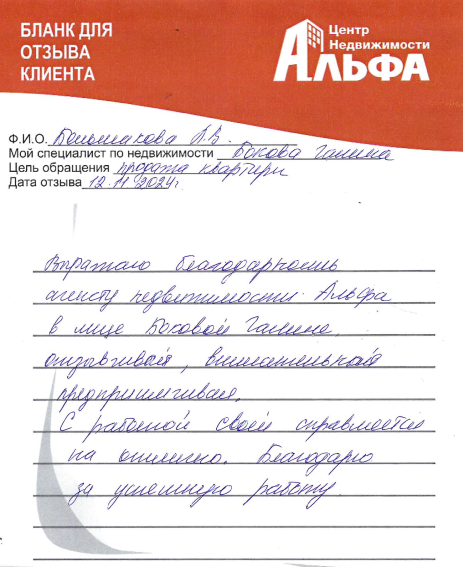 БЛАНК ДЛЯ
ОТЗЫВА
КЛИЕНТА
Центр
Недвижимости
АЛЬФА
Ф.И.О. Большакова Л.В.
Мой специалист по недвижимости Бокова Галина
Цель обращения продажа квартиры
Дата отзыва 12.11.2024г
Выражаю благодарность
агенсту недвижимости Альфа
в лице Боковой Галине
отзывчивая, внимательная
предприимчивая.
С работой своей справляется
на отлично. Благодарю
за успешную работу.